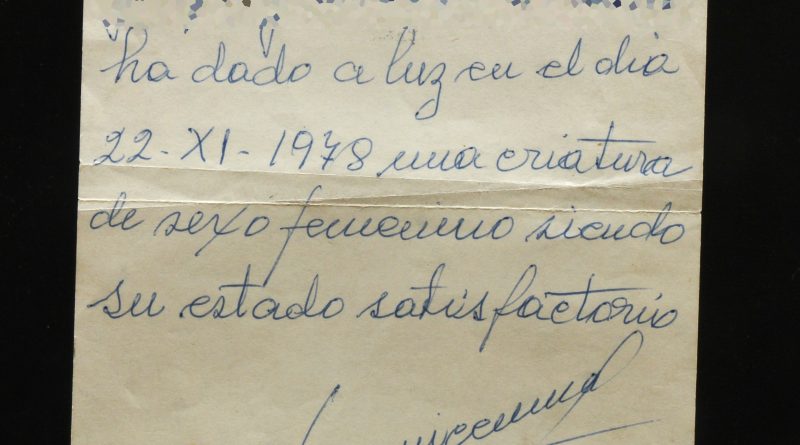 ha dado a luz en el dia
22-XI-1978 una criatura
de sexo femenino siendo
su estado satisfactorio